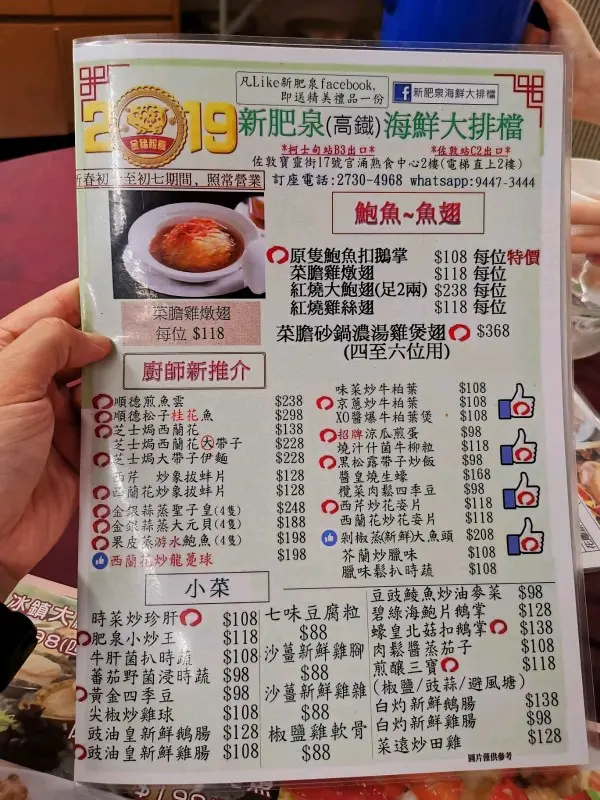 凡Like新肥泉facebook,
即送精美禮品一份
f 新肥泉海鮮大排檔
2019
金豬報喜
新肥泉(高鐵)海鮮大排檔
*柯士甸站B3出口* *佐敦站C2出口*
佐敦寶靈街17號官涌熟食中心2樓(電梯直上2樓)
新春初一至初七期間, 照常營業
訂座電話:2730-4968 whatsapp:9447-3444
鮑魚~魚翅
原隻鮑魚扣鵝掌 $108 每位特價
菜膽雞燉翅 $118 每位
紅燒大鮑翅(足2兩) $238 每位
紅燒雞絲翅 $118 每位
菜膽砂鍋濃湯雞煲翅 $368
(四至六位用)
菜膽雞燉翅
每位 $118
廚師新推介
順德煎魚雲 $238
順德松子桂花魚 $298
芝士焗西蘭花 $138
芝士焗西蘭花大帶子 $228
芝士焗大帶子伊麵 $228
西芹炒象拔蚌片 $128
西蘭花炒象拔蚌片 $128
金銀蒜蒸聖子皇(4隻) $248
金銀蒜蒸大元貝(4隻) $188
果皮蒸游水鮑魚(4隻) $198
西蘭花炒龍躉球 $198
味菜炒牛柏葉 $108
京蔥炒牛柏葉 $108
XO醬爆牛柏葉煲 $108
招牌涼瓜煎蛋 $98
燒汁什菌牛柳粒 $118
黑松露帶子炒飯 $98
醬皇燒生蠔 $168
欖菜肉鬆四季豆 $98
西芹炒花姿片 $118
西蘭花炒花姿片 $118
剁椒蒸(新鮮)大魚頭 $208
芥蘭炒臘味 $108
臘味鬆扒時蔬 $108
小菜
時菜炒珍肝 $108
肥泉小炒王 $118
牛肝菌扒時蔬 $108
蕃茄野菌浸時蔬 $98
黃金四季豆 $98
尖椒炒雞球 $108
豉油皇新鮮鵝腸 $128
豉油皇新鮮雞腸 $108
七味豆腐粒
$88
沙薑新鮮雞腳
$88
沙薑新鮮雞雜
$88
椒鹽雞軟骨
$88
豆豉鯪魚炒油麥菜 $98
碧綠海鮑片鵝掌 $128
蠔皇北菇扣鵝掌 $138
肉鬆醬蒸茄子 $108
煎釀三寶 $118
(椒鹽/豉蒜/避風塘)
白灼新鮮鵝腸 $138
白灼新鮮雞腸 $98
菜遠炒田雞 $128
圖片僅供參考
冰鎮大